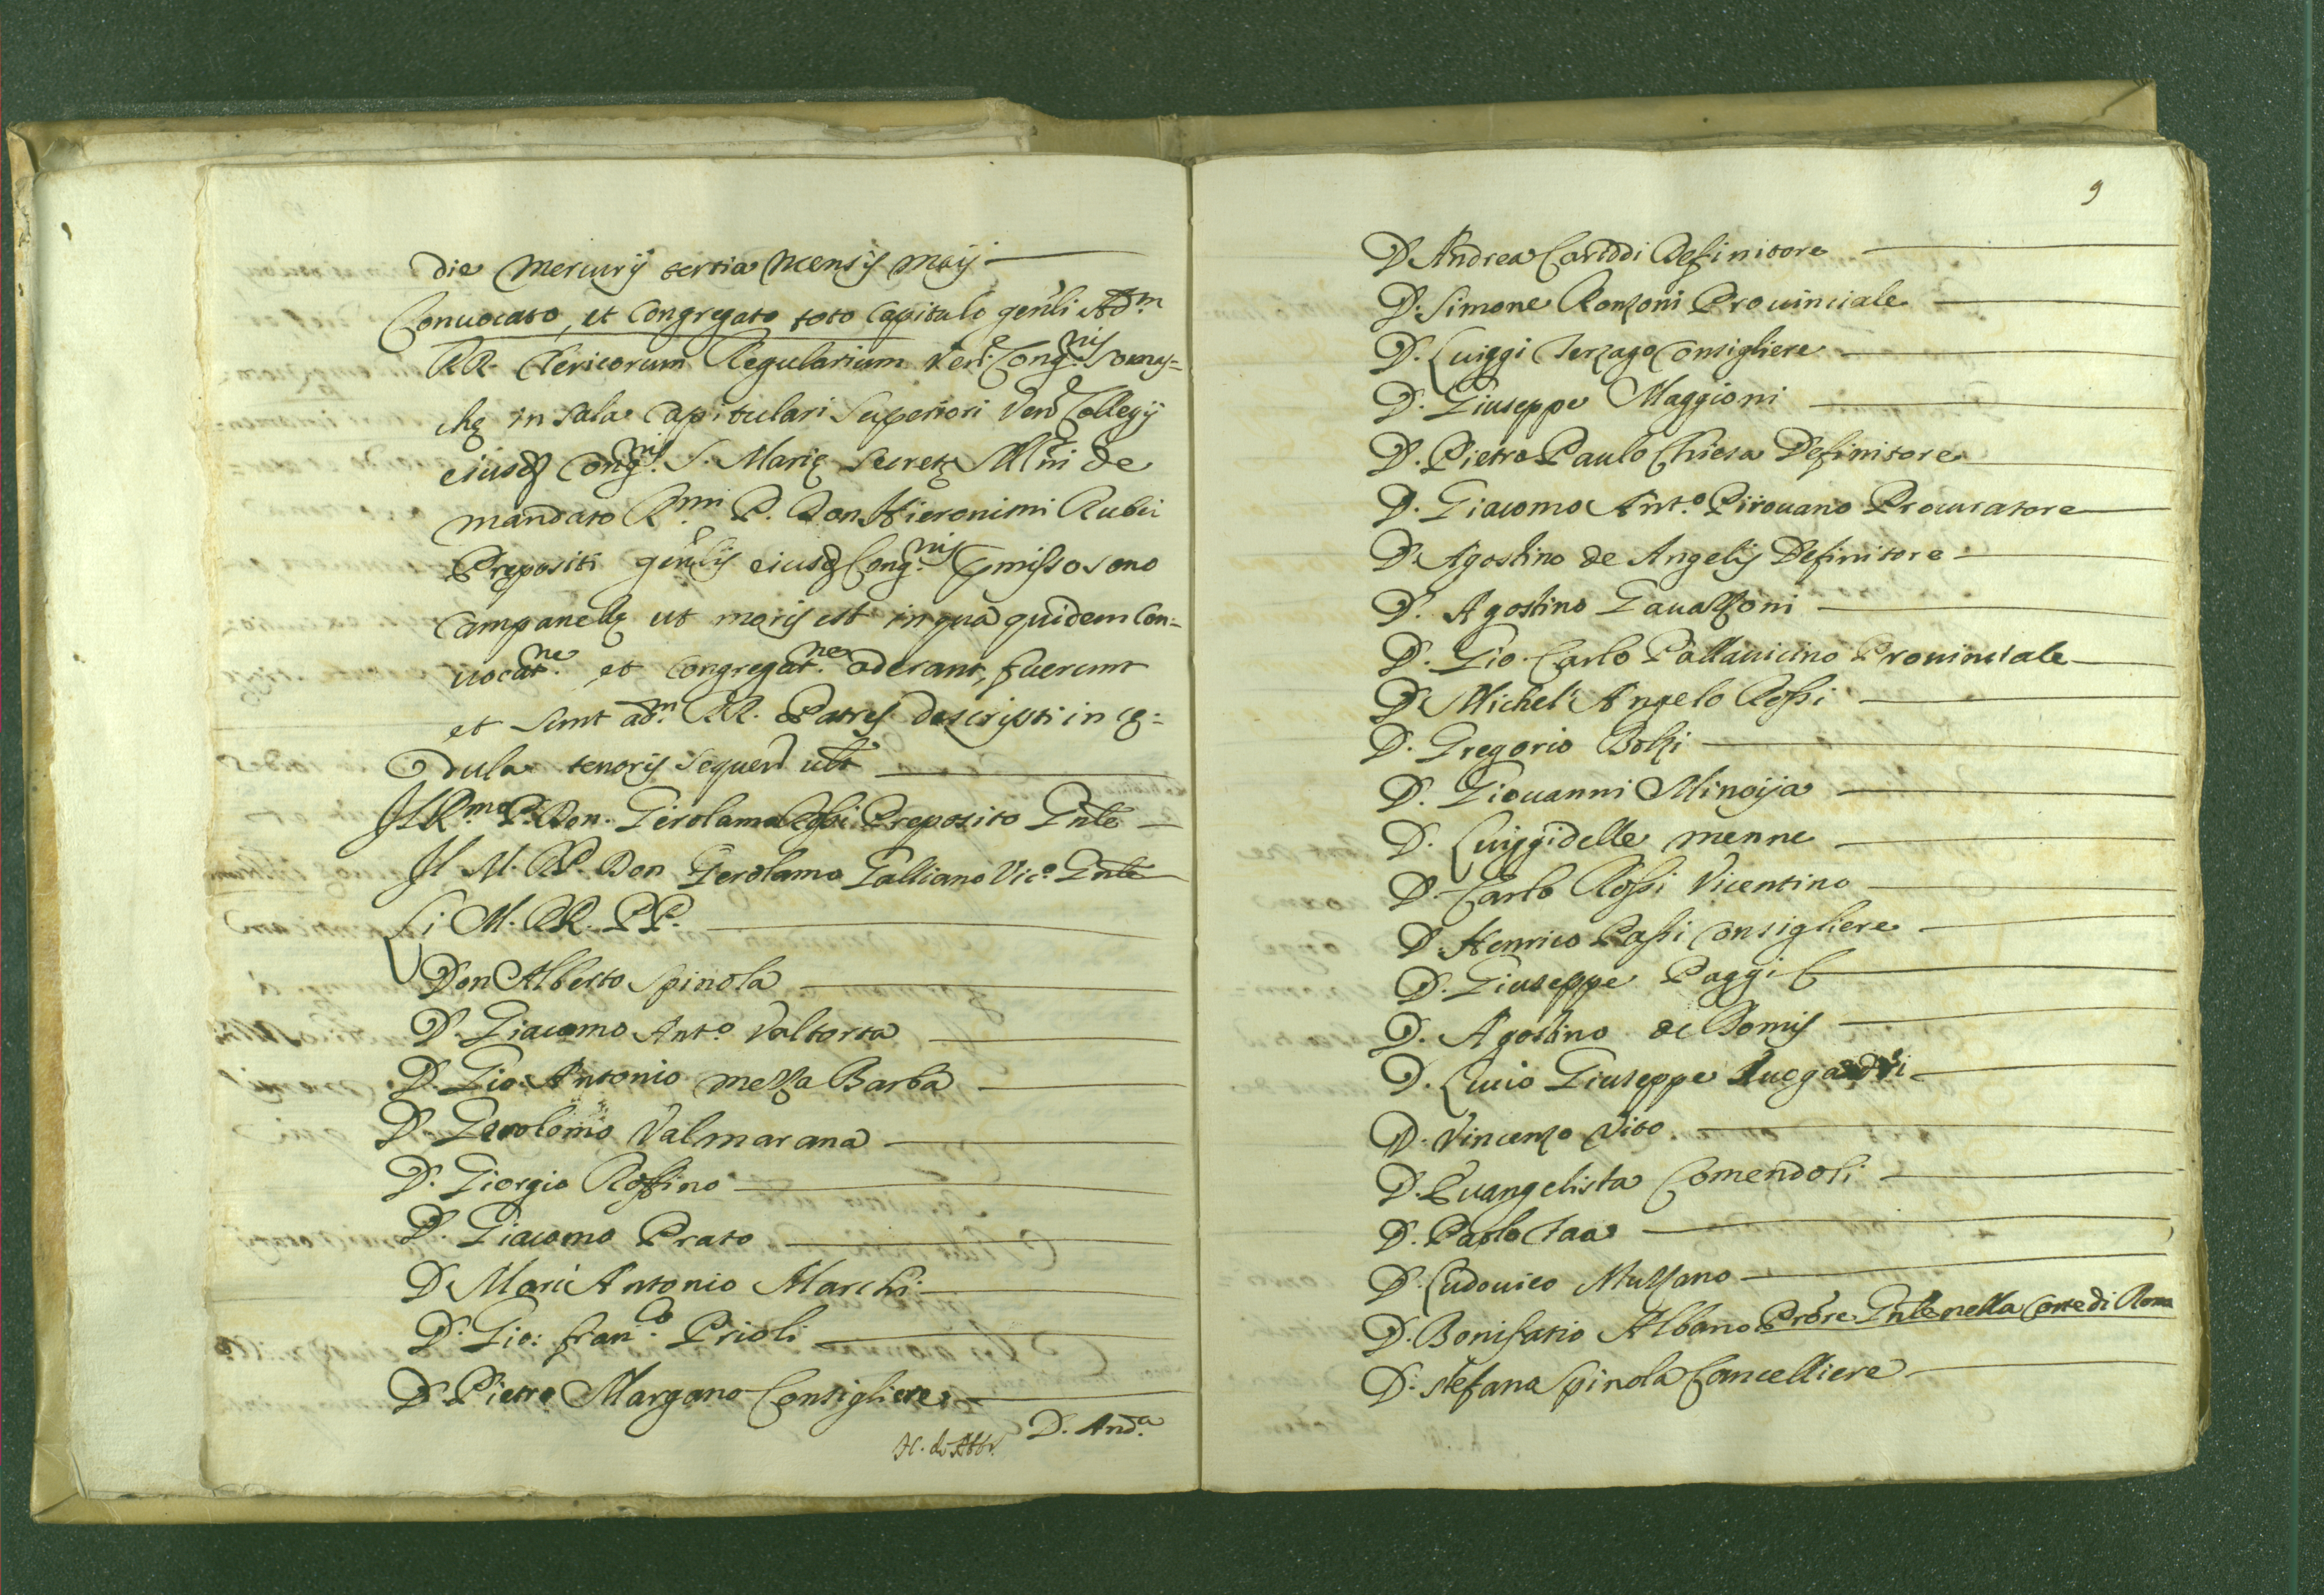 die Mercurij tertia mensis maij
Conuocato, et Congregato toto Capitulo gen̄li Adm.
RR. Clericorum Regularium Ven.e Cong.nis Somas=
chę in sala Capitulari Superiori Ven. Collegij
eiusd. Cong.nis S. Marię Secretę Młni de
mandato R.mi P. Don Hieronimi Rubei
Prępositi gen̄lis eiusd. Cong.nis pmisso sono
Campanellę ut moris est in qua quidem Con=
uocat.ne et Congregat.ne aderant, fuerunt
et sunt ad.m RR. Patres descripti in cę=
dula tenoris sequen. ult
Il R.mo P. Don. Gerolamo Rossi Preposito Gnłe
Il M. R.P. Don Gerolamo Galliano Vic.o Gnłe
Li M. RR. PP.
Don Alberto Spinola
D. Giacomo Ant.o Valtorta
D. Gio: Antonio mezza Barba
D. Gerolomo Valmarana
D. Giorgio Rossino
D. Giacomo Prato
D Marc Antonio Marchi
D. Gio: fran.co Prioli
D. Pietro Margano Consigliere
D. And.a
D Andrea Cariddi Definitore
D. Simone Ronzoni Prouinciale
D. Luiggi Terzago Consigliere
D. Giuseppe Maggioni
D. Pietro Paulo Chiesa Definitore
D. Giacomo Ant.o Pirouano Procuratore
D. Agostino de Angelis Definitore
D. Agostino Gauazzoni
D. Gio. Carlo Pallauicino Prouinciale
D. Michel' Angelo Rossi
D. Gregorio Bolzi
D. Giouanni Minoija
D. Luiggi delle menne
D. Carlo Rossi Vicentino
D. Henrico Passi Consigliere
D. Giuseppe Paggi
D. Agostino de Domis
D. Liuio Giuseppe
D. Vincenzo Vito
D. Euangelista Comendoli
D. Paolo Taa
D. Ludouico Muzzano
D. Bonifatio Albano Prōre Gnłe nella Corte di Roma
D. Stefano Spinola Cancelliere
9